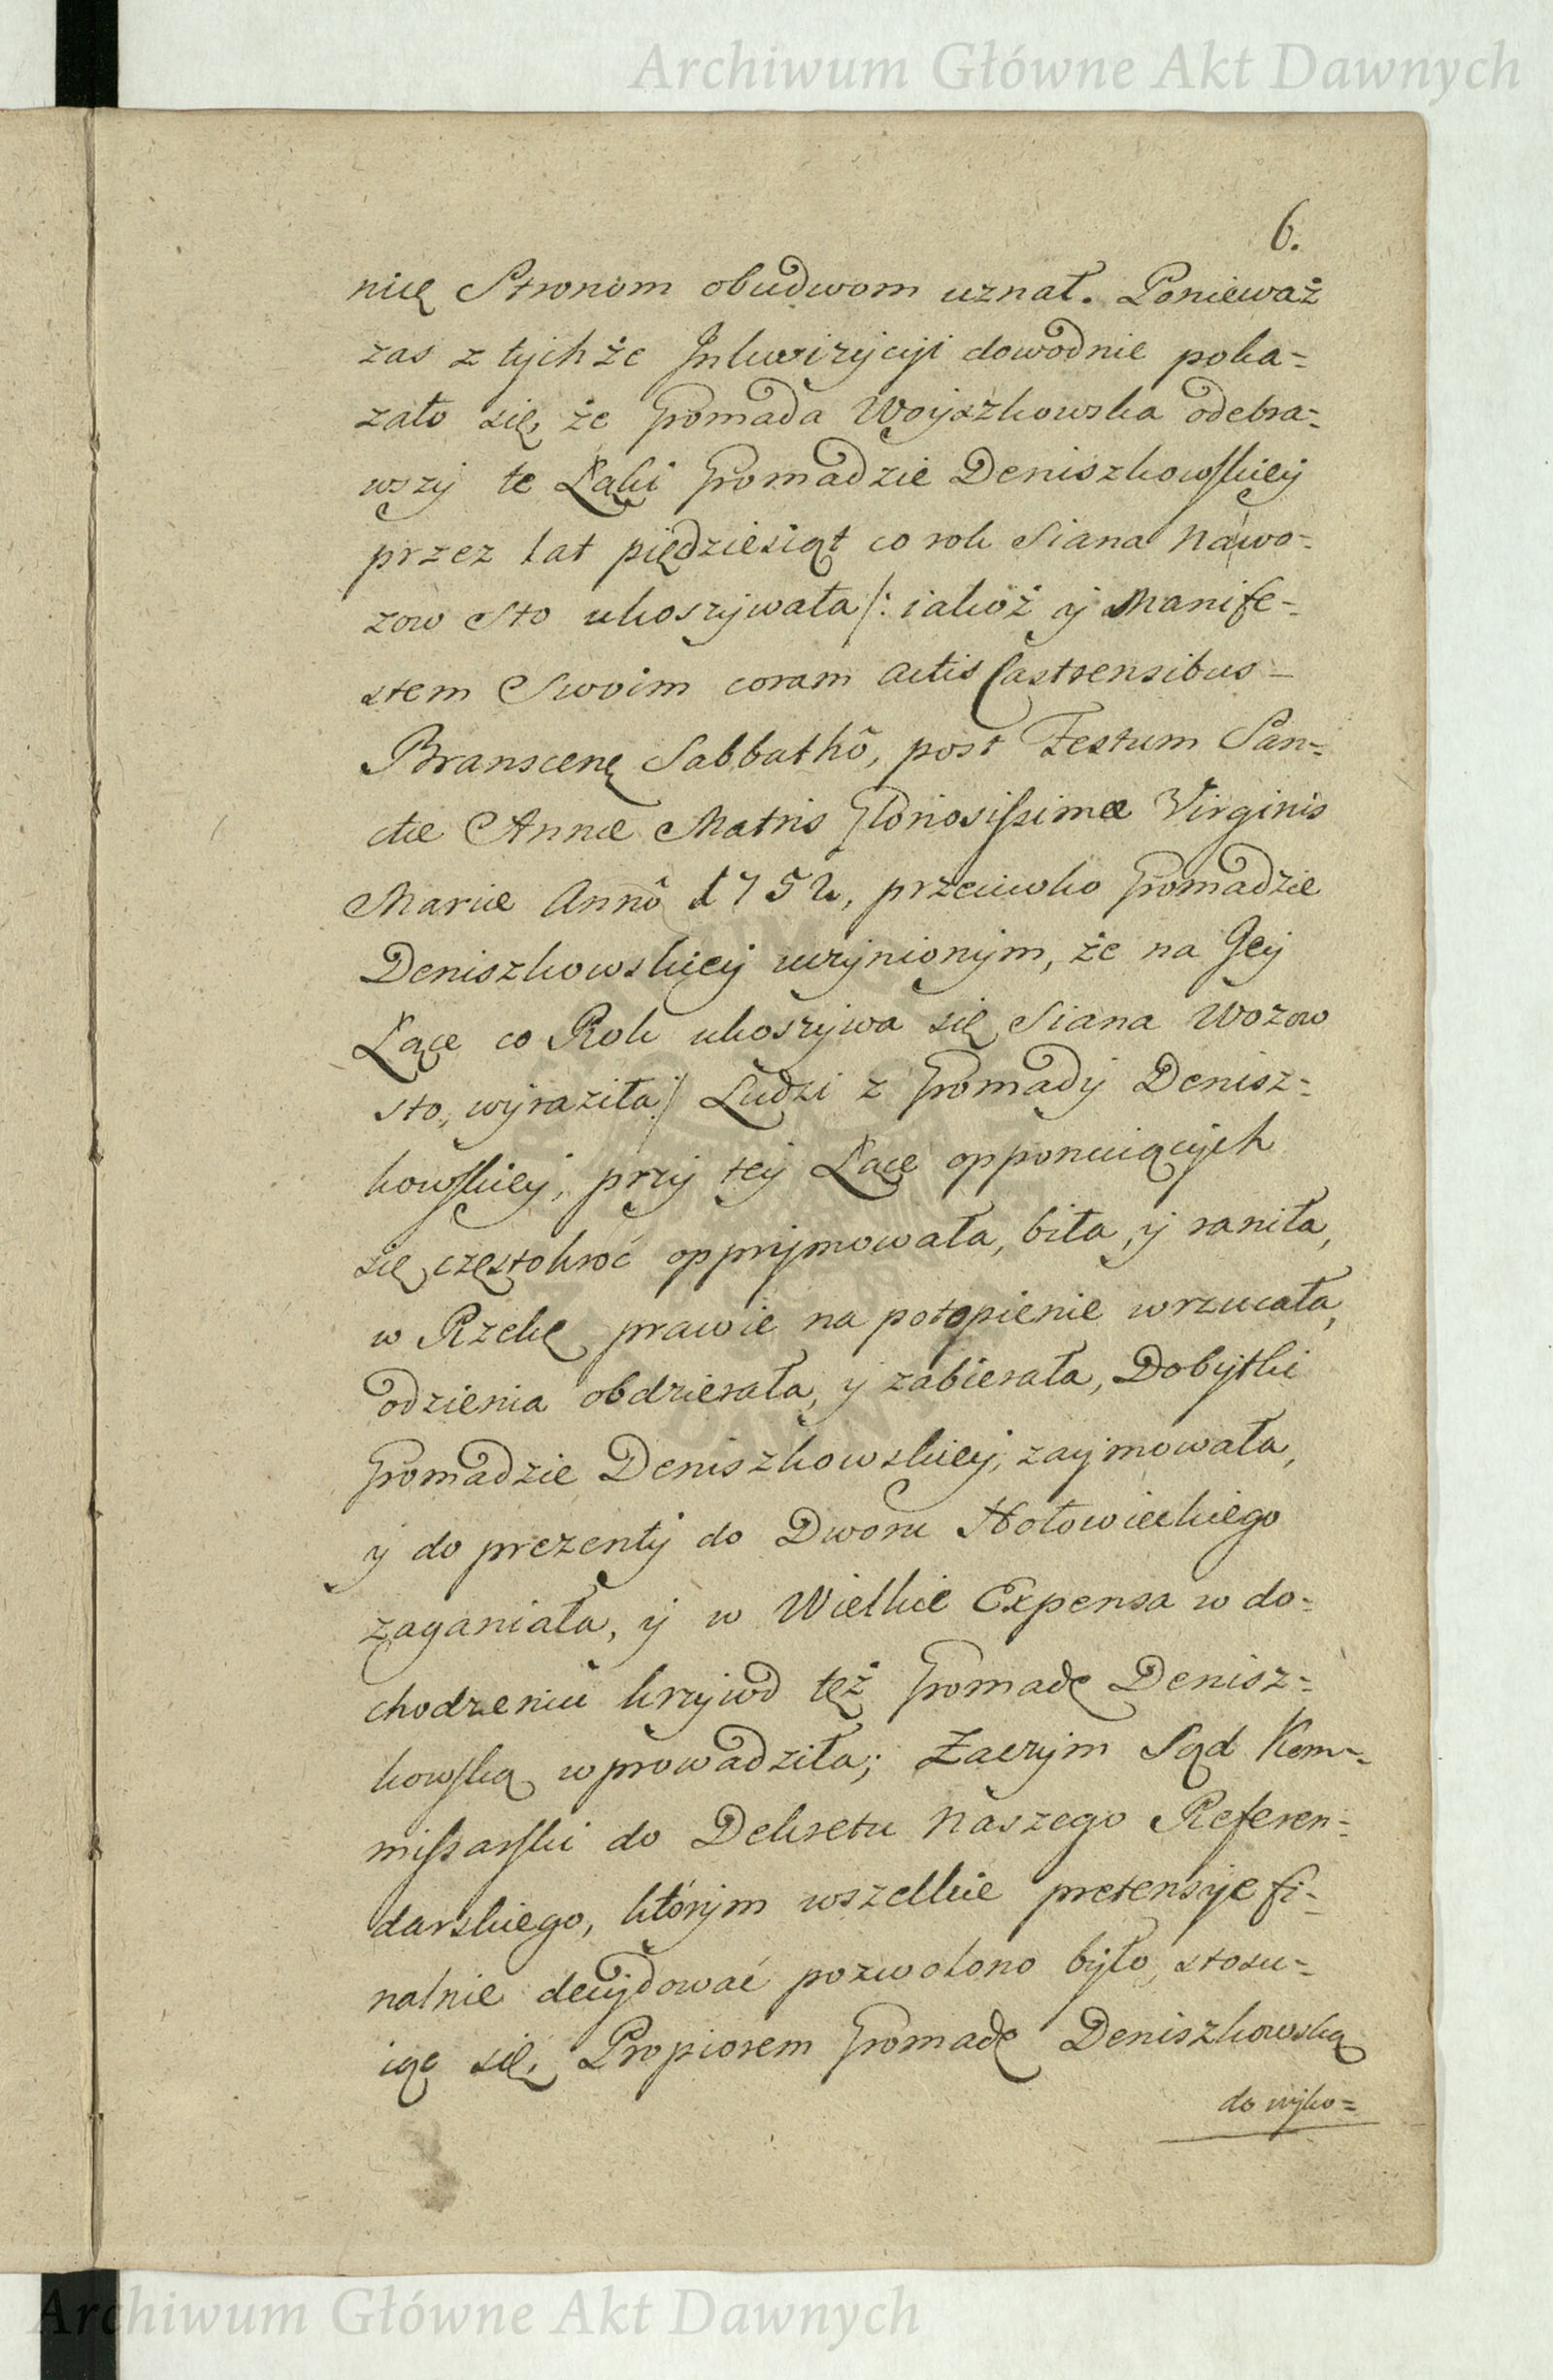 Archiwum Główne Akt Dawnych
6.
nicę Stronom obudwom uznał. Ponieważ
zas z tychże Inkwizycyi dowodnie poka=
zało się, że Gromada Woyszkowska odebra=
wszy te Łąki Gromadzie Deniszkowskiey
przez lat pięcdziesiąt co rok Siana Nawo=
zow Sto ukoszywała /: iakoż y Manife=
stem Swoim coram Actis Castrensibus
Branscenę Sabbathô, post Festum San=
ctæ Annæ Matris Gloriosissimæ Virginis
Mariæ Annô 1752, przeciwko Gromadzie
Deniszkowskiey uczynionym, że na Jey
Łące co Rok ukoszywa się Siana Wozow
sto, wyraziła :/ Ludzi z Gromady Denisz=
kowskiey, przy tey Łące opponuiących
się częstokroć opprymowała, biła, y raniła,
w Rzekę prawie na potopienie wrzucała,
odzienia obdzierała, y zabierała, Dobytki
Gromadzie Deniszkowskiey, zaymowała,
y do prezenty do Dworu Hołowieckiego
zaganiała, y w Wielkie Expensa w do=
chodzeniu krzywd też Gromadę Denisz=
kowską wprowadziła; Zaczym Sąd Kom=
missarski do Dekretu Naszego Referen=
darskiego, którym wszelkie pretensye fi=
nalnie decydować pozwolono było, stosu=
iąc się, Propiorem Gromadę Deniszkowską
do wyko=
Archiwum Główne Akt Dawnych